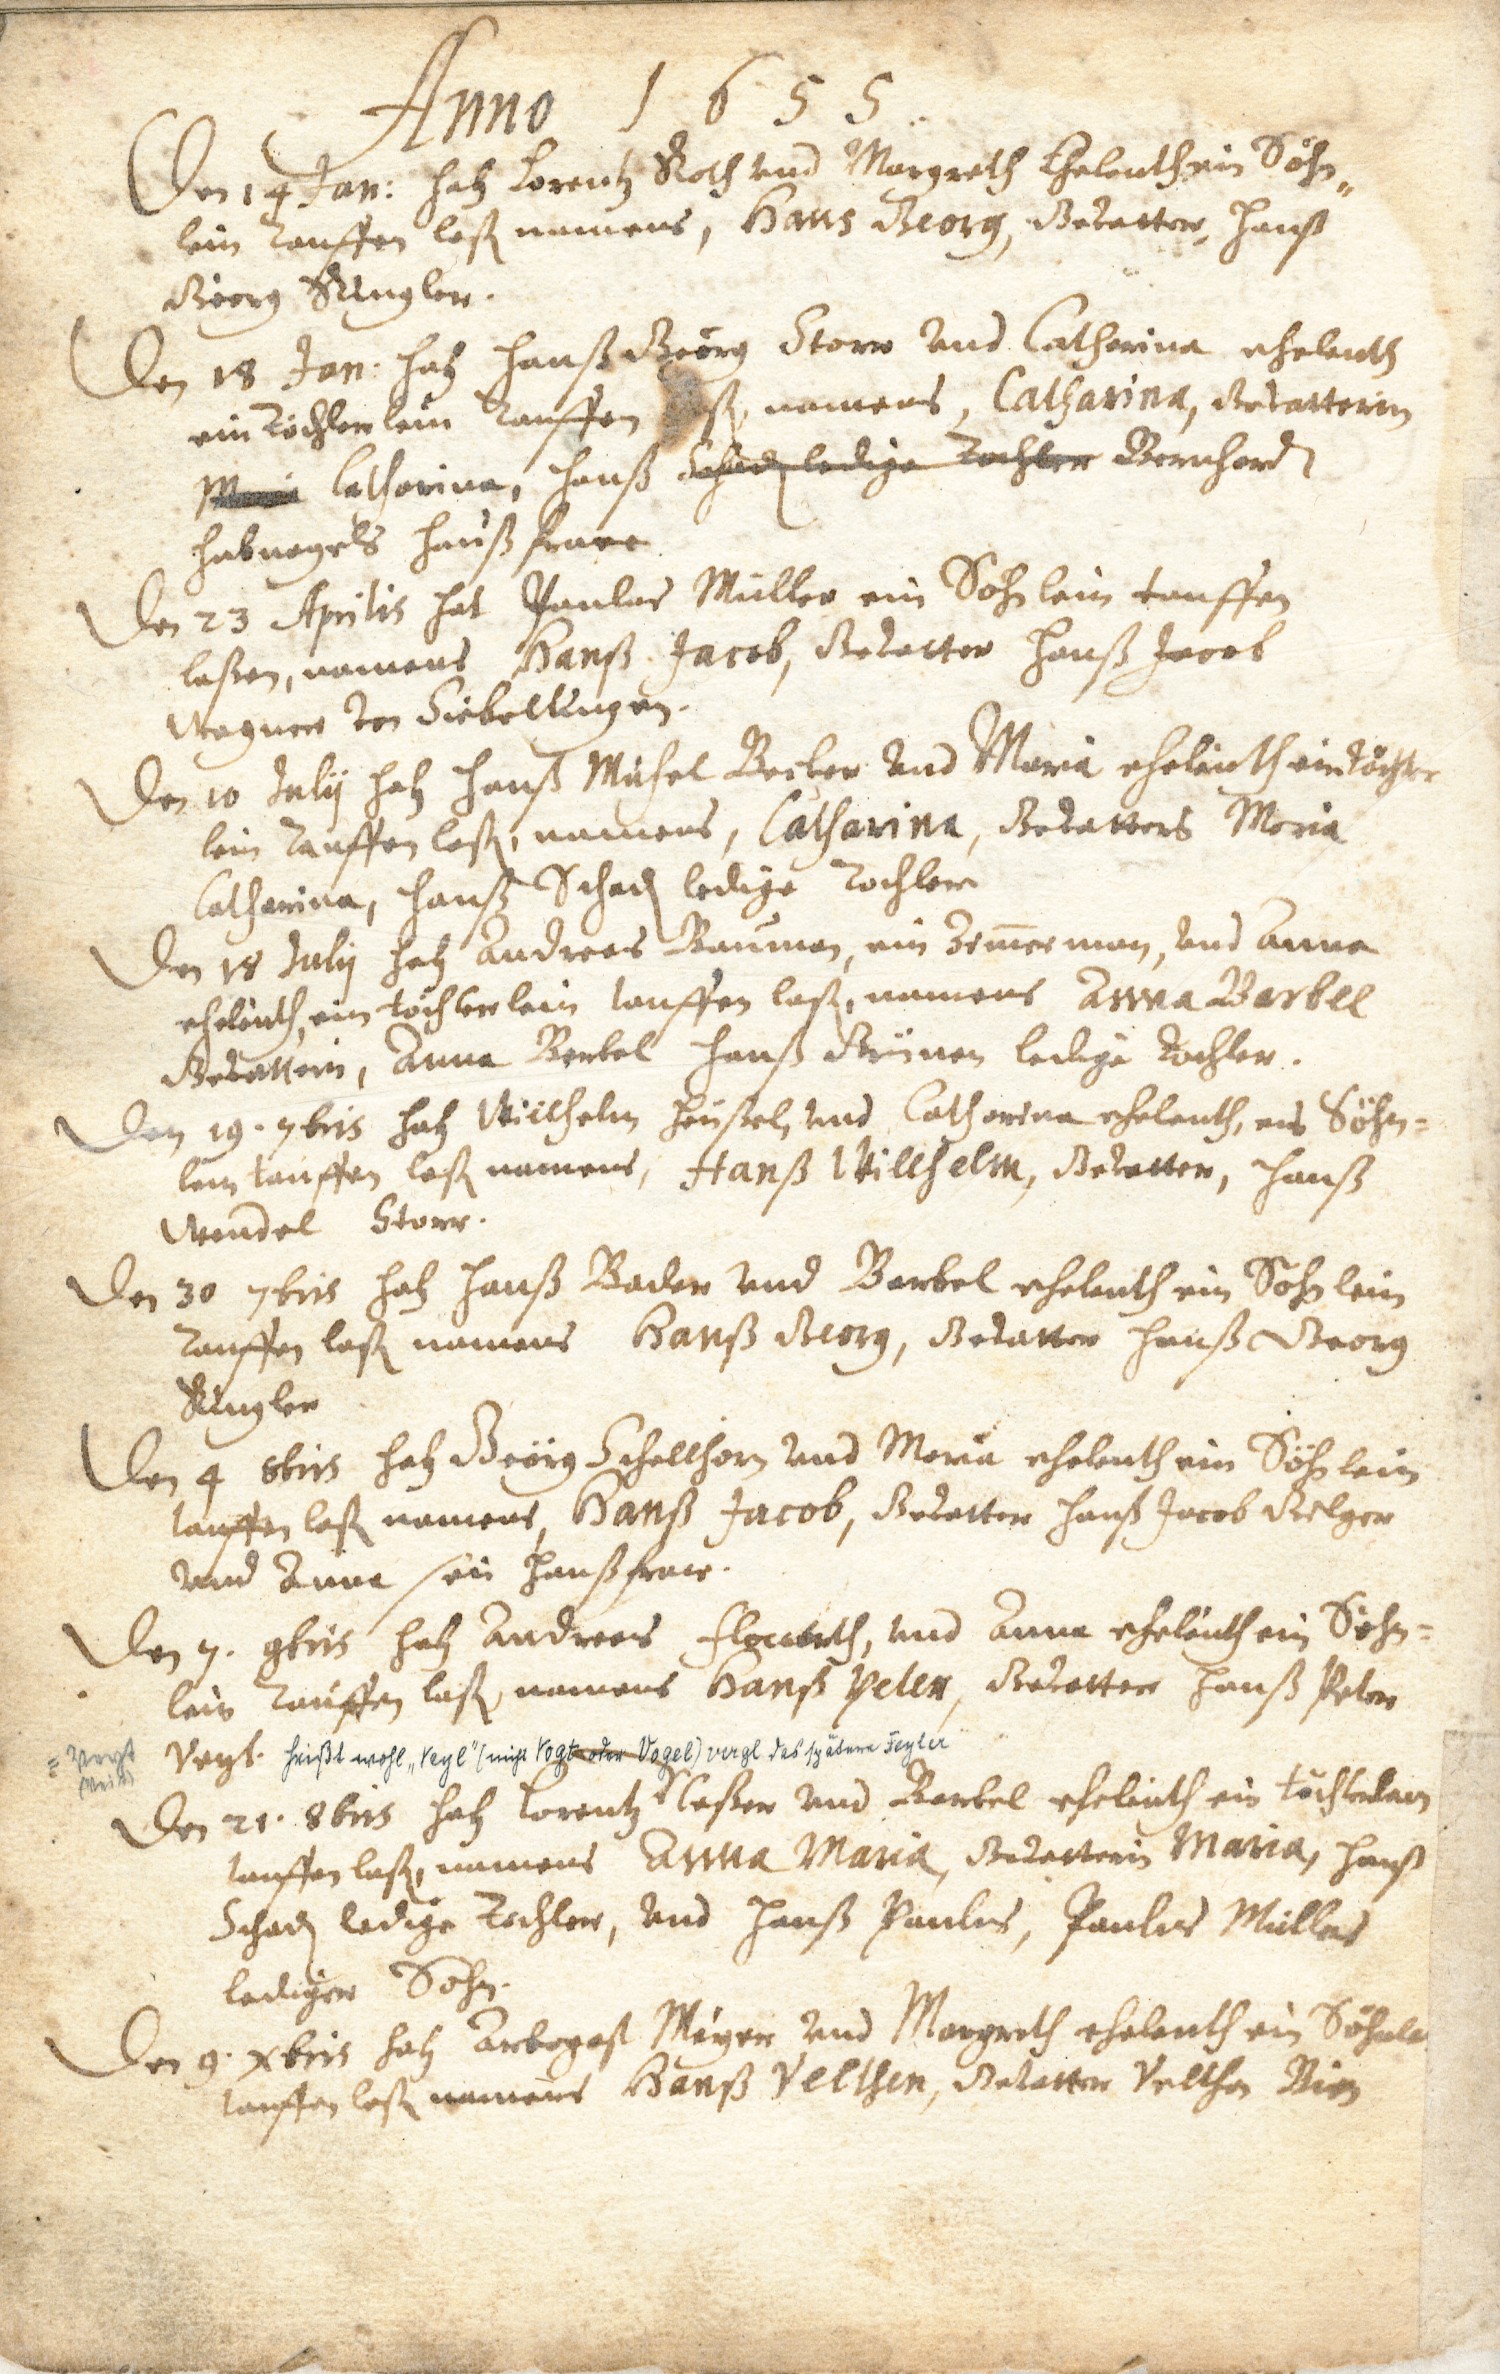 Anno 1655
Den 14 Jan: hatz Lorentz Roth vnd Margreth Eheleuth ein Söhn„
lein Tauffen laß namens, Hans Georg, Gevatter, Hanß
Georg Kugler.
Den 18 Jan: hatz Hanß Georg Storr vnd Catharina eheleuth
ein Töchterlein Tauffen laß, namens, Catharina, Gevatterin
Maria Catharina, Hanß Schad ledige Tochter Bernhard
Habnagels haußfrawe
Den 23 Aprilis hat Paulus Müller ein Söhnlein tauffen
laßen, namens Hanß Jacob, Gevatter Hanß Jacob
Wagner von Siebeldingen.
Den 10 Julij hatz Hanß Michel Becker vnd Maria eheleuth ein Töchter
lein Tauffen laß, namens, Catharina, Gevatters Maria
Catharina, Hanß Schad ledige Tochter
Den 18 Julij hatz Andreas Bauman, ein Zimmerman, vnd Anna
eheleuth, ein töchterlein tauffen laß, namens Anna Barbel
Gevatterin, Anna Barbel Hanß Grünen ledige Tochter.
Den 19. 7bris hatz Willhelm Heußel, vnd Catharina eheleuth, ein Söhn=
lein tauffen laß namens, Hanß Willhelm, Gevatter, Hanß
Wendel Storr.
Den 30 7bris hatz Hanß Bader vnd Barbel eheleuth ein Söhnlein
Tauffen laß namens Hanß Georg, Gevatter Hanß Georg
Kugler
Den 4 8bris hatz Georg Schellhorn vnd Maria eheleuth ein Söhnlein
tauffen laß namens, Hanß Jacob, Gevatter Hanß Jacob Gilger
vnd Anna sein Haußfraw.
Den 7. 9bris hatz Andreas vnd Anna eheleuth ein Söhn=
lein Tauffen laß, namens Hanß Peter, Gevatter Hanß Peter
Veyl. heißt wohl „Veyl" (nicht Vogt oder Vogel) vergl das spätere Feyler
Den 21. 8bris hatz Lorentz vnd Barbel eheleuth ein töchterlein
tauffen laß, namens Anna Maria, Gevatterin Maria, Hanß
Schad ledige Tochter, vnd Hanß Paulus, Paulus Müllers
lediger Sohn.
Den 9. Xbris hatz Arbogast Meyer vnd Margreth eheleuth ein Söhnle
tauffen laß namens Hanß Velthen, Gevatter Velthen